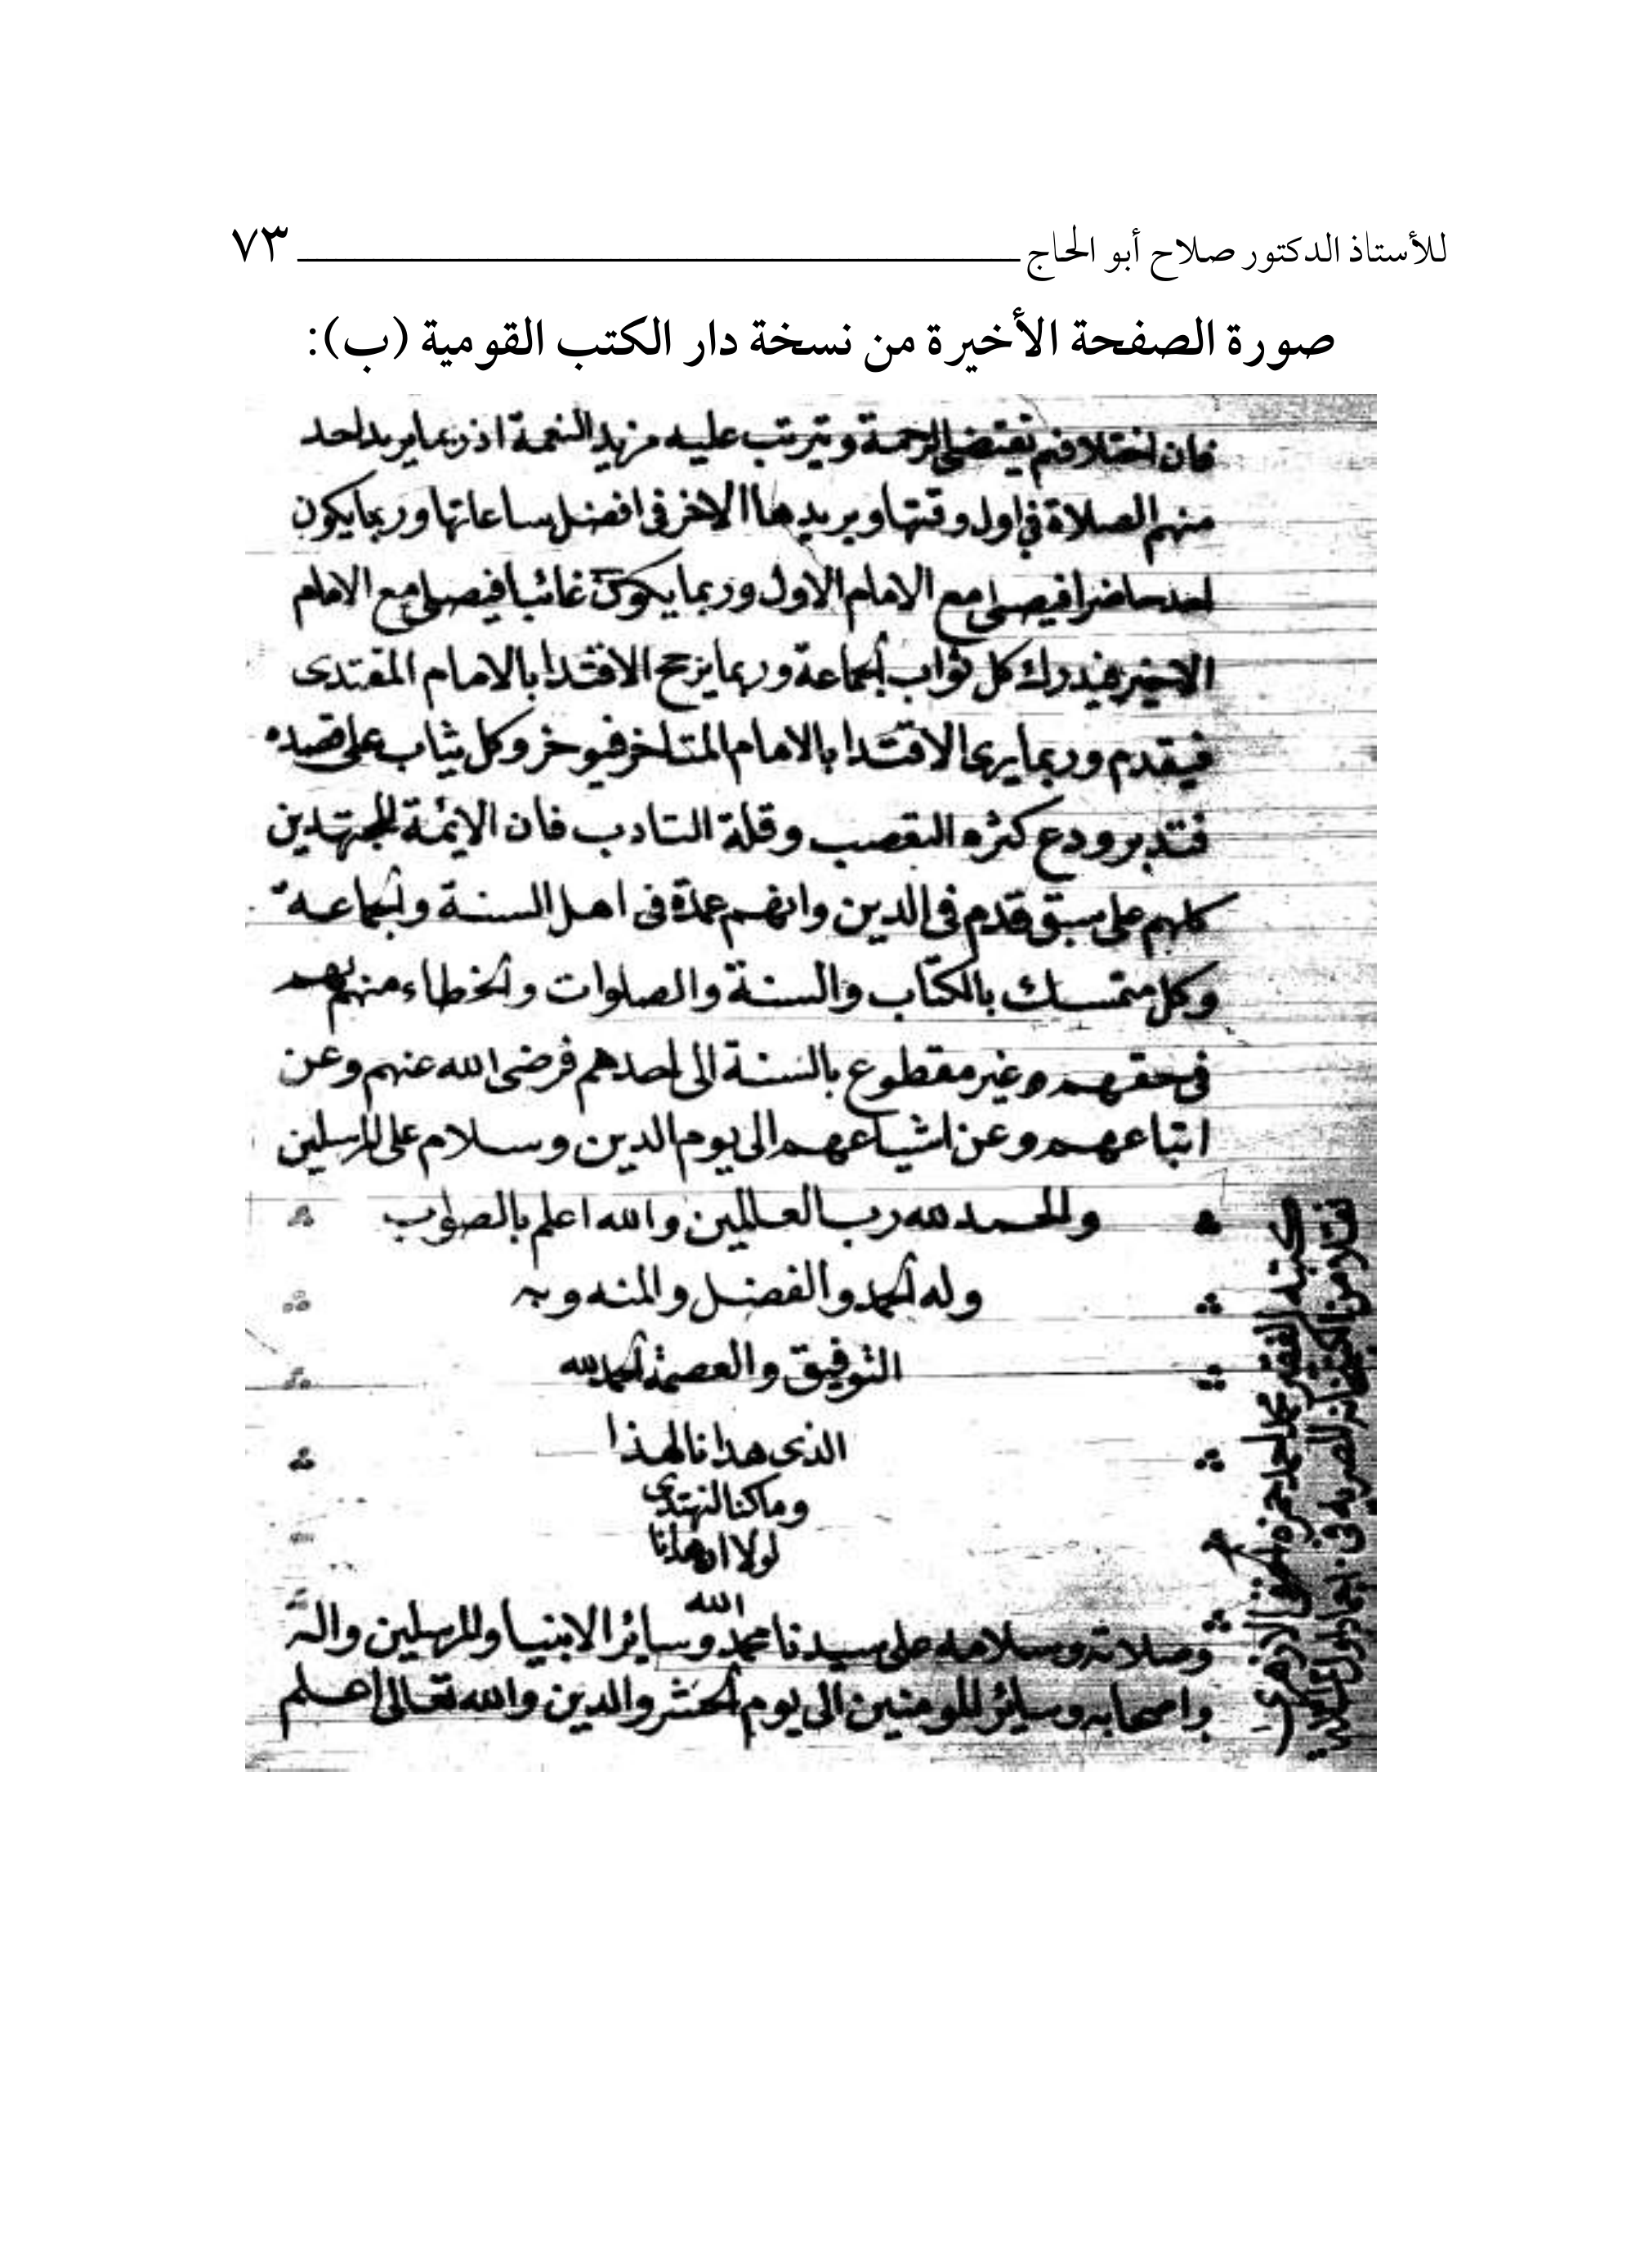 للأستاذ الدكتور صلاح أبو الحاج ٧٣
صورة الصفحة الأخيرة من نسخة دار الكتب القومية (ب):
فان اختلافهم يقتضي الرحمة ويترتب عليه مزيد النعمة اذ ربما يريد احد
منهم الصلاة في اول وقتها ويريدها الاخر في افضل ساعاتها وربما يكون
احد حاضرا فيصلي مع الامام الاول وربما يكون غائبا فيصلي مع الامام
الاخير فيدرك كل ثواب الجماعة وربما يرجح الاقتدا بالامام المقتدى
فيقدم وربما يرى الاقتدا بالامام المتاخر فيوخر وكل يثاب على قصده
فتدبر ودع كثره التعصب وقلة التادب فان الايمة المجتهدين
كلهم على سبق قدم في الدين وانهم عمدة في اهل السنة والجماعة
وكل متمسك بالكتاب والسنة والصلوات والخطاء منهم
في حقهم وغير مقطوع بالنسبة الى احدهم فرضى الله عنهم وعن
اتباعهم وعن اشياعهم الى يوم الدين وسلام على المرسلين
والحمد لله رب العالمين والله اعلم بالصواب
وله الحمد والفضل والمنه وبه
التوفيق والعصمة الحمد لله
الذى هدانا لهذا
وماكنا لنهتدى
لولا ان هدانا
الله
وصلاته وسلامه على سيدنا محمد وسائر الانبيا والمرسلين واله
واصحابه وسائر المومنين الى يوم الحشر والدين والله تعالى اعلم
كتبه الفقير محمد احمد حمزه الازهرى
نقلا من الكتبخانه المصريه فى جماد اول